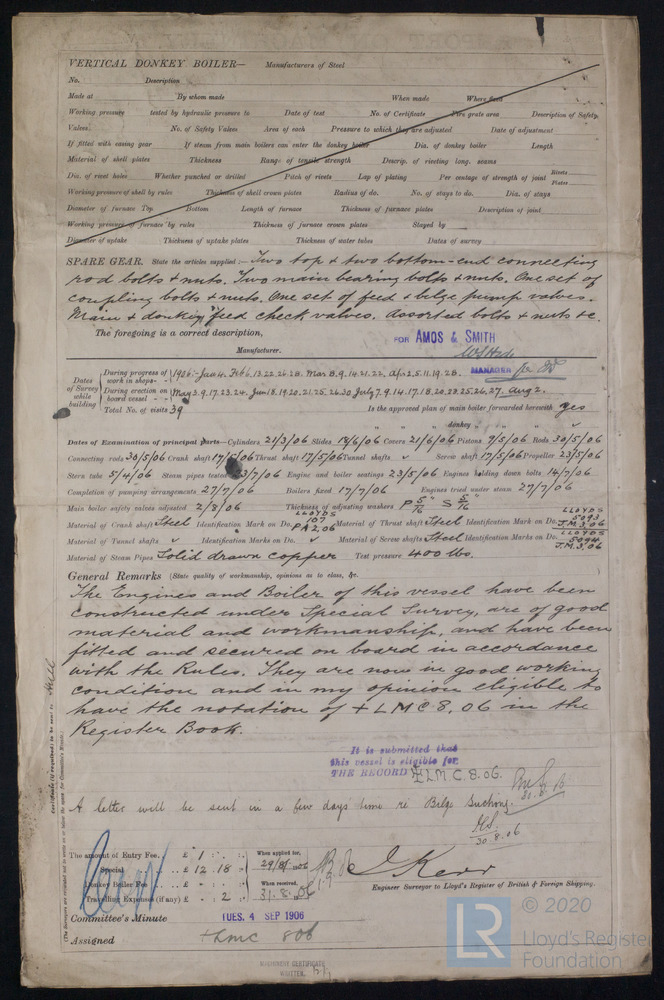 VERTICAL DONKEY BOILER— Manufacturers of Steel
No. Description
Made at By whom made When made Where fixed
Working pressure tested by hydraulic pressure to Date of test No. of Certificate Fire grate area Description of Safety
Valves No. of Safety Valves Area of each Pressure to which they are adjusted Date of adjustment
If fitted with easing gear If steam from main boilers can enter the donkey boiler Dia. of donkey boiler Length
Material of shell plates Thickness Range of tensile strength Descrip. of riveting long. seams
Dia. of rivet holes Whether punched or drilled Pitch of rivets Lap of plating Per centage of strength of joint Rivets Plates
Working pressure of shell by rules Thickness of shell crown plates Radius of do. No. of stays to do. Dia. of stays
Diameter of furnace Top Bottom Length of furnace Thickness of furnace plates Description of joint
Working pressure of furnace by rules Thickness of furnace crown plates Stayed by
Diameter of uptake Thickness of uptake plates Thickness of water tubes Dates of survey
SPARE GEAR. State the articles supplied:— Two top & two bottom-end connecting
rod bolts & nuts. Two main bearing bolts & nuts. One set of
coupling bolts & nuts. One set of feed & bilge pump valves.
Main & donkey feed check valves. Assorted bolts & nuts &c.
The foregoing is a correct description,
FOR AMOS & SMITH
Manufacturer.
MANAGER
Dates of Survey while building
During progress of work in shops - - 1906:- Jan 4. Feb 6.13.22.26.28. Mar 8.9.14.21.22. Apr 2.5.11.19.28.
During erection on board vessel - - May 3.9.17.23.24. Jun 18.19.20.21.25.26.30 July 7.9.14.17.18.20.23.25.26.27. Aug 2.
Total No. of visits 39
Is the approved plan of main boiler forwarded herewith Yes
" " " donkey " " "
Dates of Examination of principal parts—Cylinders 21/3/06 Slides 18/6/06 Covers 21/6/06 Pistons 9/5/06 Rods 30/5/06
Connecting rods 30/5/06 Crank shaft 17/5/06 Thrust shaft 17/5/06 Tunnel shafts Screw shaft 17/5/06 Propeller 23/5/06
Stern tube 5/4/06 Steam pipes tested 23/7/06 Engine and boiler seatings 23/5/06 Engines holding down bolts 14/7/06
Completion of pumping arrangements 27/7/06 Boilers fixed 17/7/06 Engines tried under steam 27/7/06
Main boiler safety valves adjusted 2/8/06 Thickness of adjusting washers P 5/16" S 5/16"
Material of Crank shaft Steel Identification Mark on Do. LLOYDS 107 PA 2.06 Material of Thrust shaft Steel Identification Mark on Do. LLOYDS 5093 J.M.3.06
Material of Tunnel shafts Identification Marks on Do. Material of Screw shafts Steel Identification Marks on Do. LLOYDS 5094 J.M.3.06
Material of Steam Pipes Solid drawn copper Test pressure 400 lbs.
General Remarks (State quality of workmanship, opinions as to class, &c.
The Engines and Boiler of this vessel have been
constructed under Special Survey, are of good
material and workmanship, and have been
fitted and secured on board in accordance
with the Rules. They are now in good working
condition and in my opinion eligible to
have the notation of + LMC 8.06 in the
Register Book.
It is submitted that
this vessel is eligible for
THE RECORD + L.M.C. 8.06.
A letter will be sent in a few days time re Bilge Suctions.
30.8.06
Certificate (if required) to be sent to Hull
The amount of Entry Fee. . . £ 1 : :
Special . . £ 12 . 18 :
Donkey Boiler Fee . . £ - : - :
Travelling Expenses (if any) £ - : 2 :
When applied for, 29/8/1906
When received, 31.8.06
J Kerr
Engineer Surveyor to Lloyd's Register of British & Foreign Shipping.
Committee's Minute TUES. 4 SEP 1906
Assigned + Lmc 8 06
MACHINERY CERTIFICATE
WRITTEN.
LR © 2020
Lloyd's Register
Foundation